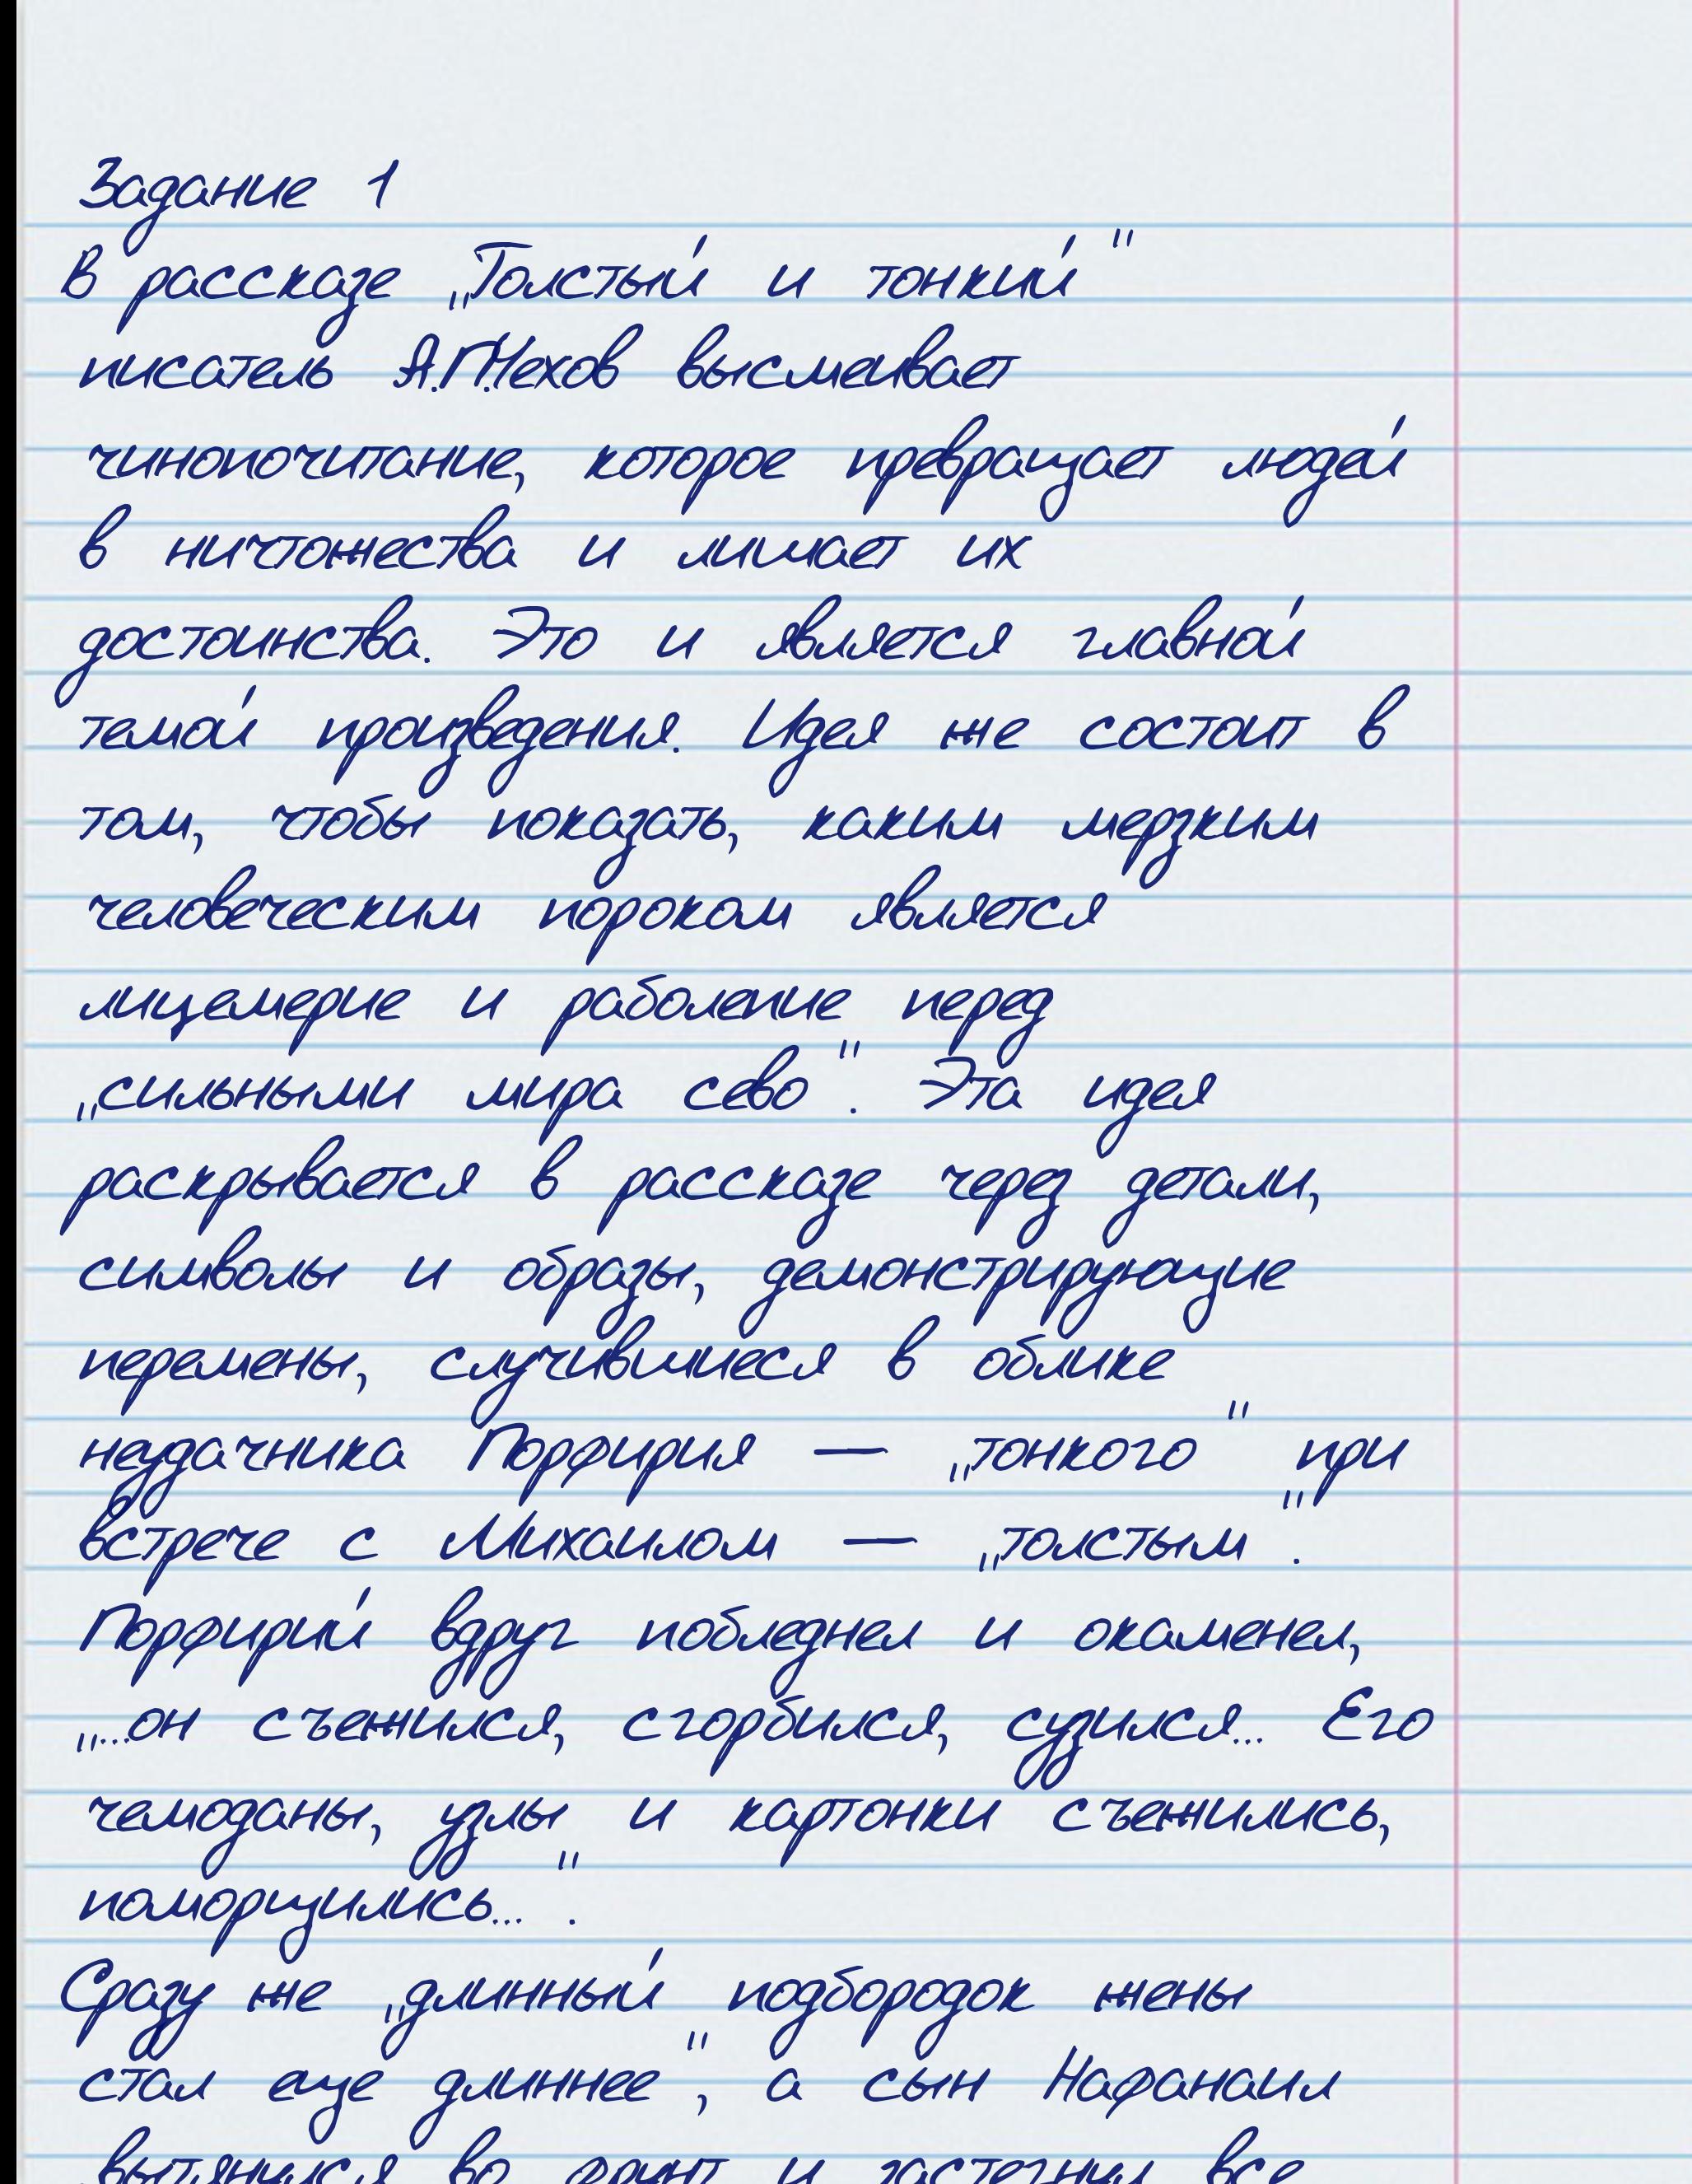 Задание 1
В рассказе „Толстый и тонкий"
писатель А.П.Чехов высмеивает
чинопочитание, которое превращает людей
в ничтожества и лишает их
достоинства. Это и является главной
темой произведения. Идея же состоит в
том, чтобы показать, каким мерзким
человеческим пороком является
лицемерие и раболепие перед
„сильными мира сево". Эта идея
раскрывается в рассказе через детали,
символы и образы, демонстрирующие
перемены, случившиеся в облике
неудачника Порфирия — „тонкого" при
встрече с Михаилом — „толстым".
Порфирий вдруг побледнел и окаменел,
„...он съежился, сгорбился, сузился... Его
чемоданы, узлы и картонки съежились,
поморщились...".
Сразу же „длинный подбородок жены
стал еще длиннее", а сын Нафанаил
вытянулся во фрунт и застегнул все